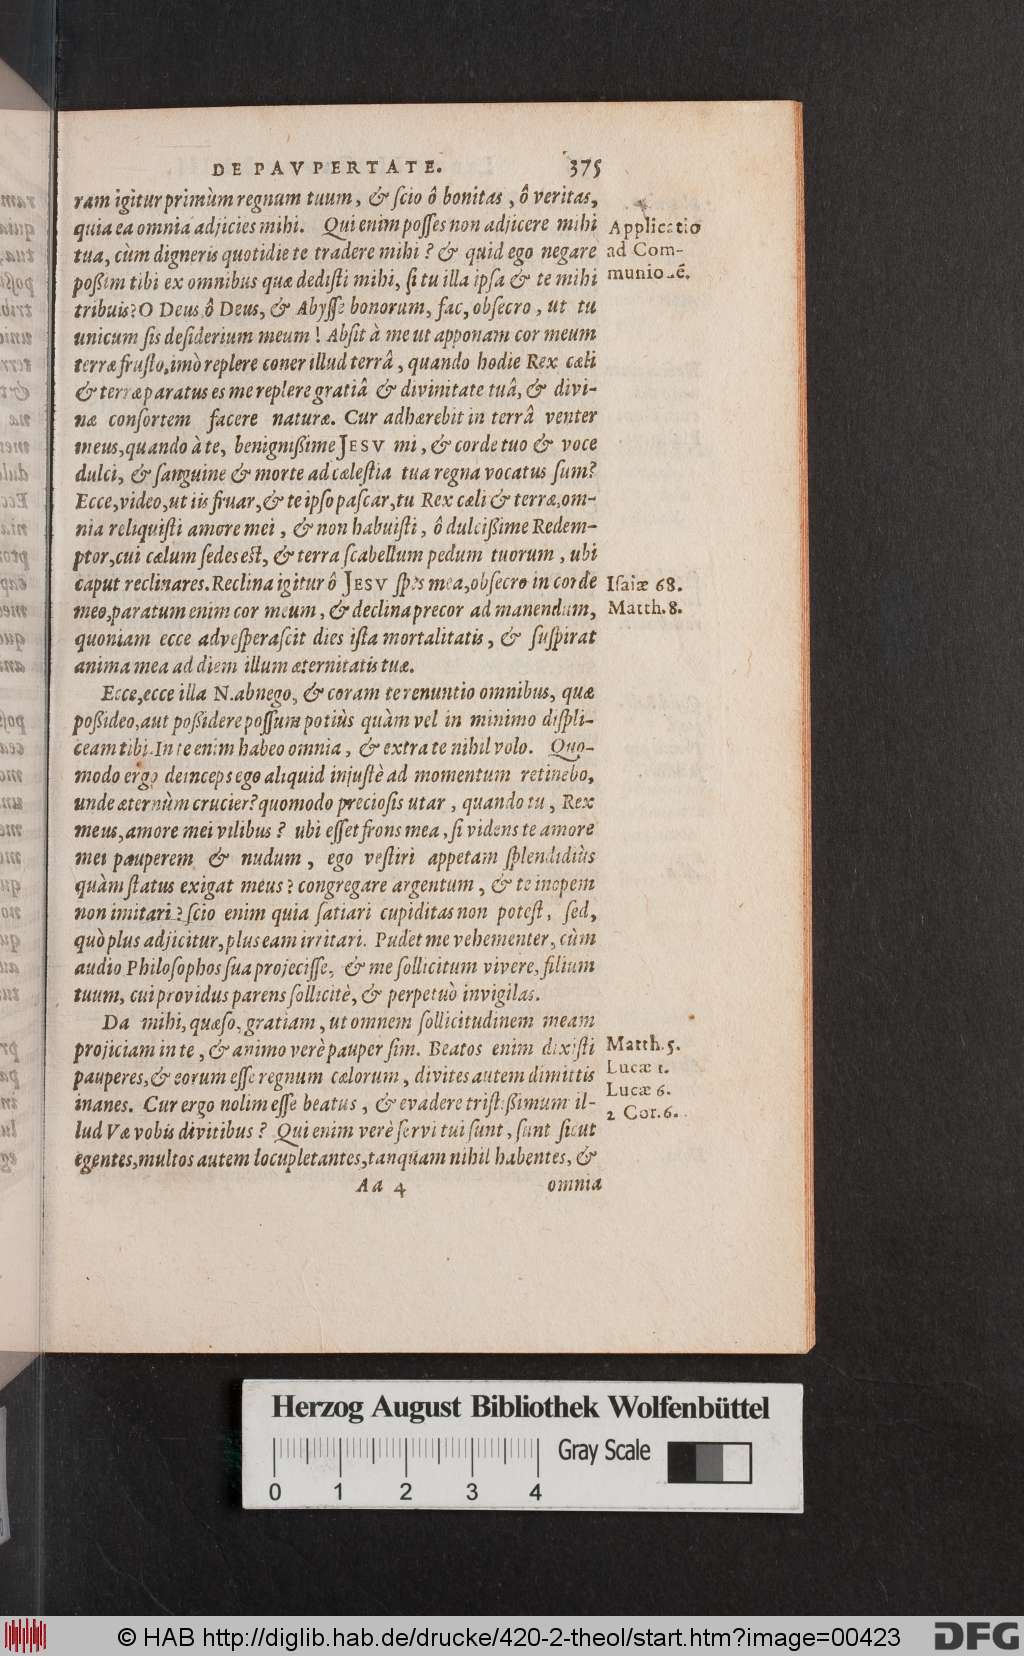 DE PAVPERTATE. 375
ram igitur primùm regnum tuum, & ſcio ô bonitas, ô veritas,
quia ea omnia adjicies mihi. Qui enim poſſes non adjicere mihi
tua, cùm digneris quotidie te tradere mihi? & quid ego negare
poßim tibi ex omnibus quæ dediſti mihi, ſi tu illa ipſa & te mihi
tribuis? O Deus, ô Deus, & Abyſſe bonorum, fac, obſecro, ut tu
unicum ſis deſiderium meum! Abſit à me ut apponam cor meum
terræ fruſto, imò replere coner illud terrâ, quando hodie Rex cæli
& terræ paratus es me replere gratiâ & divinitate tuâ, & divi-
næ conſortem facere naturæ. Cur adhærebit in terrâ venter
meus, quando à te, benignißime JESV mi, & corde tuo & voce
dulci, & ſanguine & morte ad cæleſtia tua regna vocatus ſum?
Ecce, video, ut iis fruar, & te ipſo paſcar, tu Rex cæli & terræ, om-
nia reliquiſti amore mei, & non habuiſti, ô dulcißime Redem-
ptor, cui cælum ſedes eſt, & terra ſcabellum pedum tuorum, ubi
caput reclinares. Reclina igitur ô JESV ſpes mea, obſecro in corde
meo, paratum enim cor meum, & declina precor ad manendum,
quoniam ecce adveſperaſcit dies iſta mortalitatis, & ſuſpirat
anima mea ad diem illum æternitatis tuæ.
Ecce, ecce illa N. abnego, & coram te renuntio omnibus, quæ
poßideo, aut poßidere poſſum potiùs quàm vel in minimo diſpli-
ceam tibi. In te enim habeo omnia, & extra te nihil volo. Quo-
modo ergo deinceps ego aliquid injuſtè ad momentum retinebo,
unde æternùm crucier? quomodo precioſis utar, quando tu, Rex
meus, amore mei vilibus? ubi eſſet frons mea, ſi videns te amore
mei pauperem & nudum, ego veſtiri appetam ſplendidiùs
quàm ſtatus exigat meus? congregare argentum, & te inopem
non imitari? ſcio enim quia ſatiari cupiditas non poteſt, ſed,
quò plus adjicitur, plus eam irritari. Pudet me vehementer, cùm
audio Philoſophos ſua projeciſſe, & me ſollicitum vivere, filium
tuum, cui providus parens ſollicitè, & perpetuò invigilas.
Da mihi, quæſo, gratiam, ut omnem ſollicitudinem meam
projiciam in te, & animo verè pauper ſim. Beatos enim dixiſti
pauperes, & eorum eſſe regnum cælorum, divites autem dimittis
inanes. Cur ergo nolim eſſe beatus, & evadere triſtißimum il-
lud Væ vobis divitibus? Qui enim verè ſervi tui ſunt, ſunt ſicut
egentes, multos autem locupletantes, tanquam nihil habentes, &
Aa 4 omnia
Applicatio
ad Com-
munionẽ.
Iſaiæ 68.
Matth. 8.
Matth. 5.
Lucæ 1.
Lucæ 6.
2 Cor. 6.
Herzog August Bibliothek Wolfenbüttel
Gray Scale
0 1 2 3 4
© HAB http://diglib.hab.de/drucke/420-2-theol/start.htm?image=00423
DFG